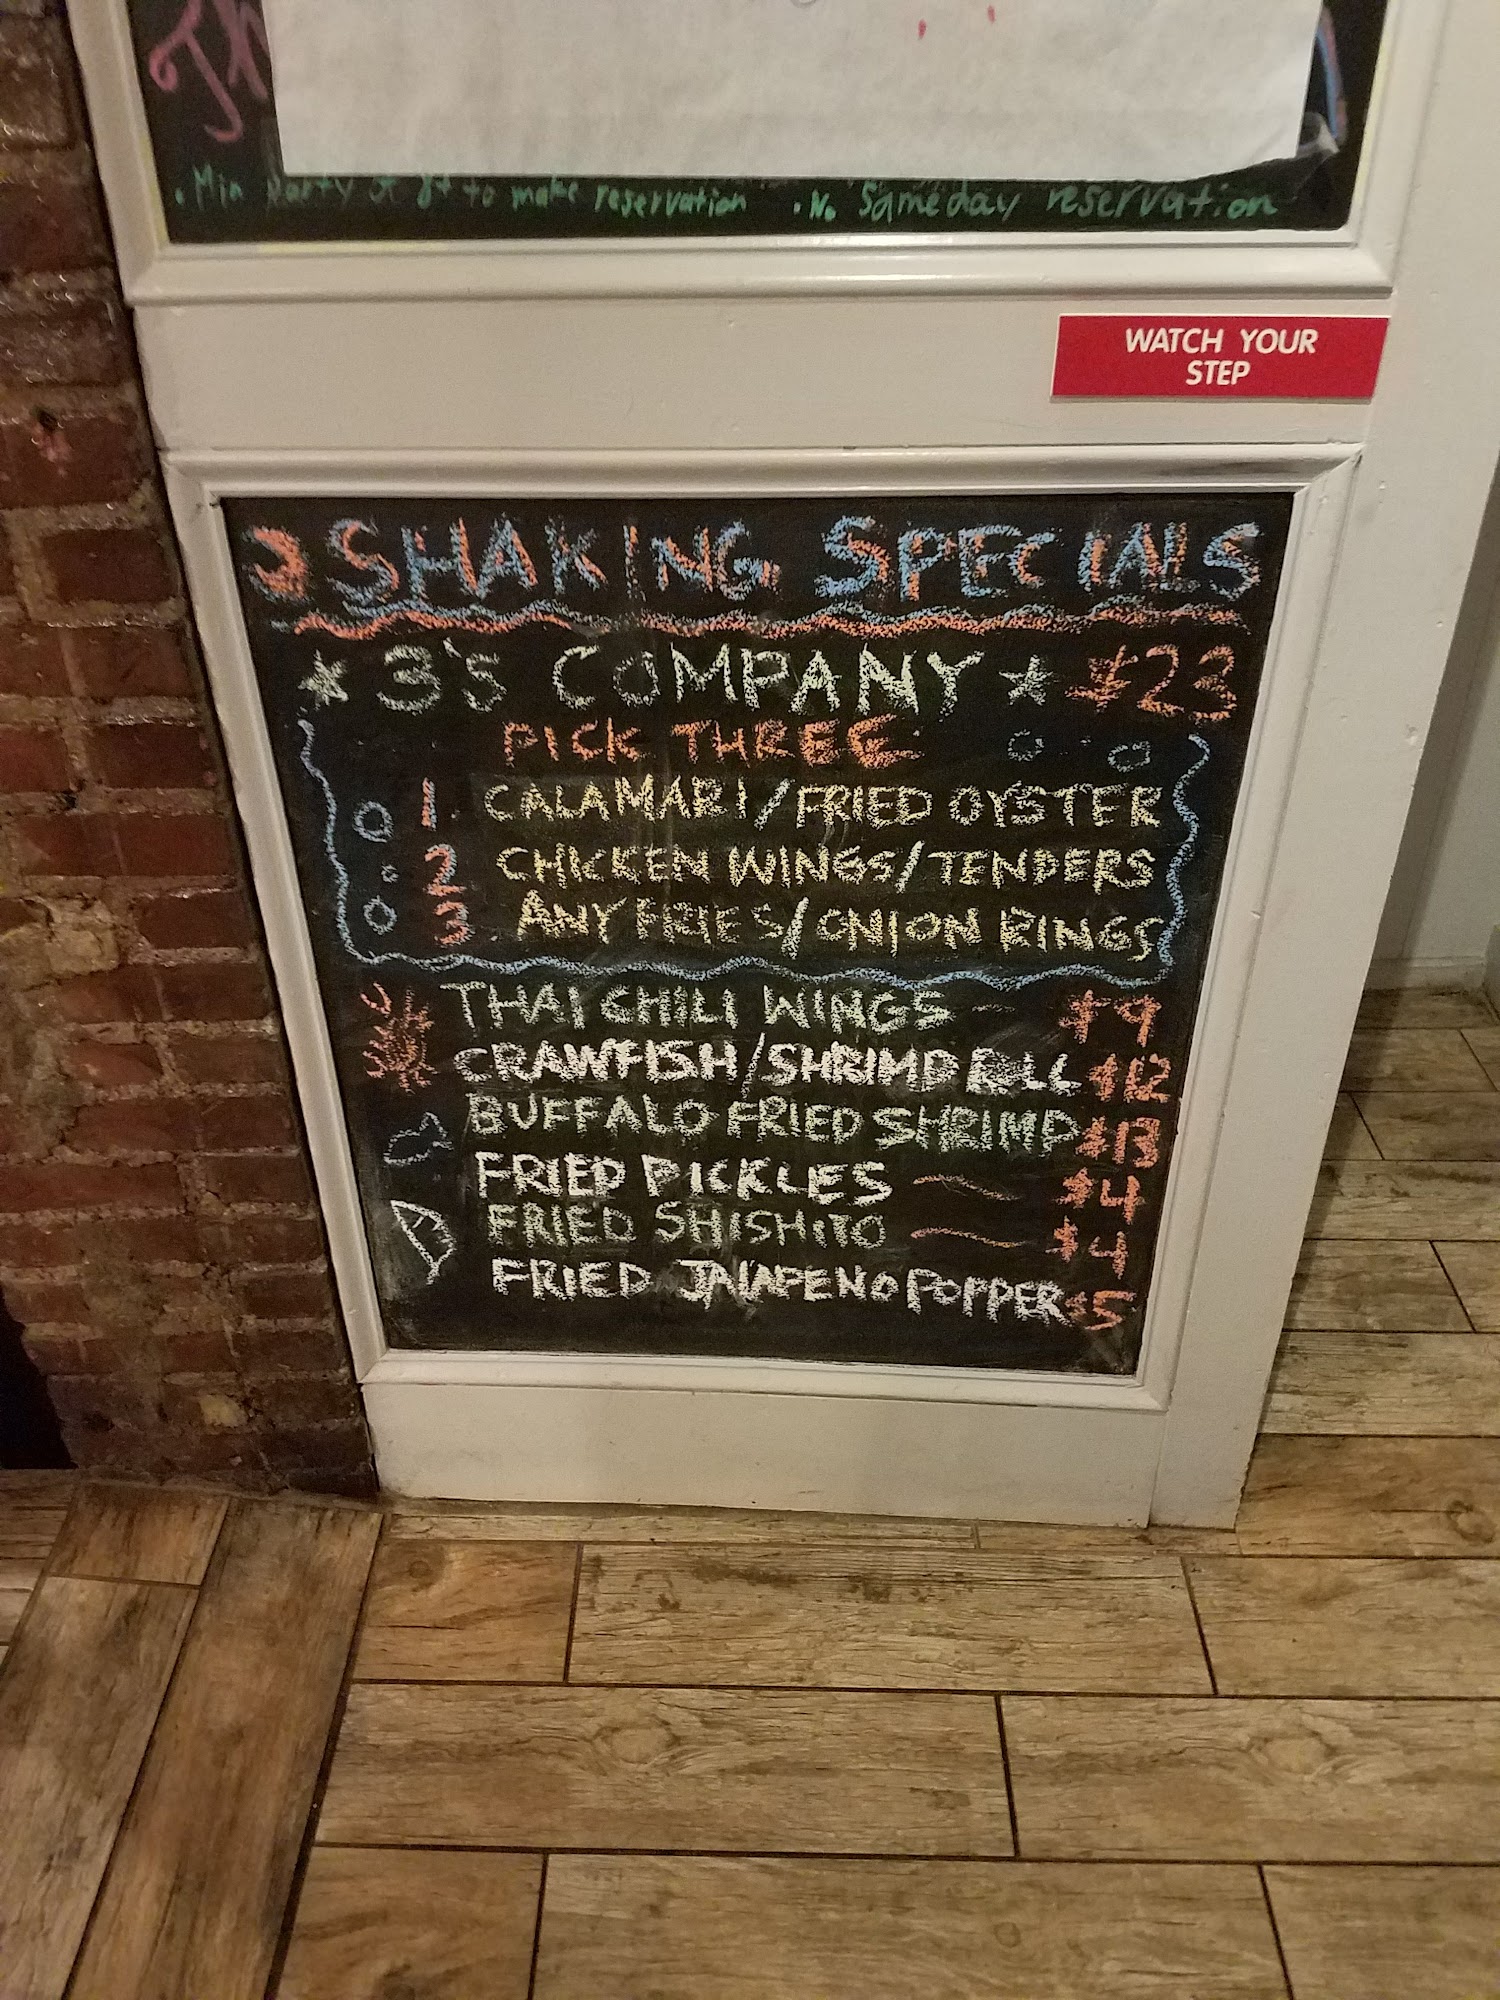 Th
• Min party of 8+ to make reservation • No Sameday reservation
WATCH YOUR
STEP
SHAKING SPECIALS
3's COMPANY $23
PICK THREE
1. CALAMARI/FRIED OYSTER
2 CHICKEN WINGS/TENDERS
3. ANY FRIES/ONION RINGS
THAI CHILI WINGS $9
CRAWFISH/SHRIMP ROLL $12
BUFFALO FRIED SHRIMP $13
FRIED PICKLES $4
FRIED SHISHITO $4
FRIED JALAPENO POPPER $5